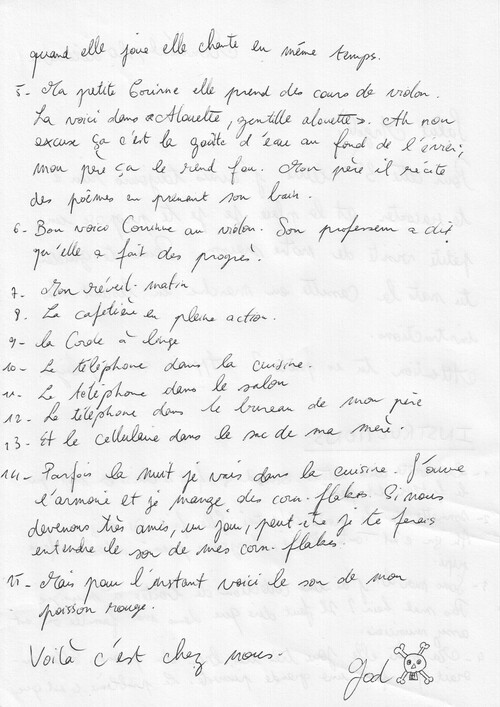 quand elle joue elle chante en même temps.
5- Ma petite Corinne elle prend des cours de violon.
La voici dans «Alouette, gentille alouette». Ah non
excuse ça c'est la goûte d'eau au fond de l'évier;
mon père ça le rend fou. Mon père il récite
des poèmes en prenant son bain.
6- Bon voici Corinne au violon. Son professeur a dit
qu'elle a fait des progrès.
7- Mon réveil-matin
8- La cafetière en pleine action.
9- la Corde à linge
10- Le téléphone dans la cuisine.
11- Le téléphone dans le salon
12- Le téléphone dans le bureau de mon père
13- Et le cellulaire dans le sac de ma mère.
14- Parfois la nuit je vais dans la cuisine. J'ouvre
l'armoire et je mange des corn-flakes. Si nous
devenons très amis, un jour, peut-être je te ferais
entendre le son de mes corn-flakes.
15- Mais pour l'instant voici le son de mon
poisson rouge.
Voilà c'est chez nous.
Jad